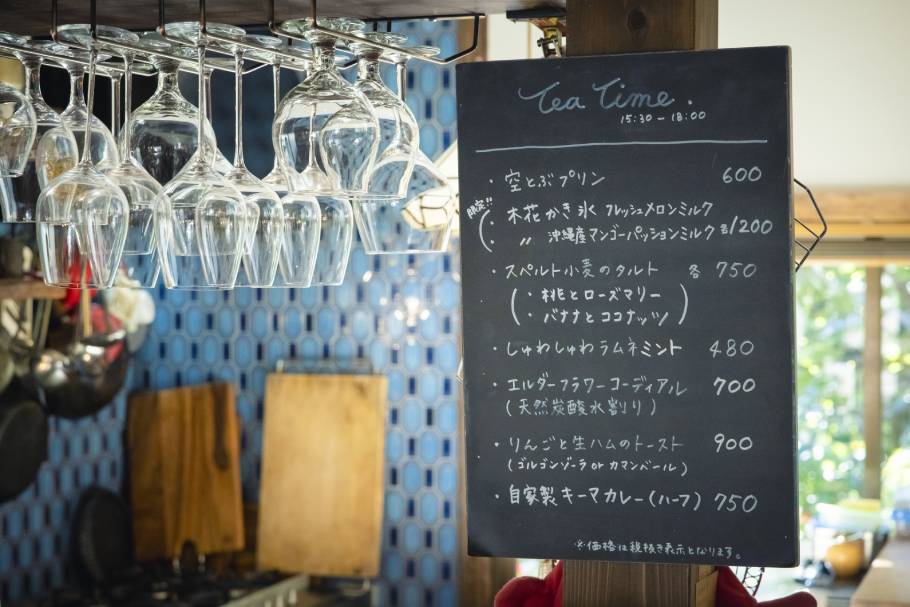 Tea Time.
15:30 - 18:00
・空とぶプリン 600
限定!!
・木花かき氷 フレッシュメロンミルク
・ 〃 沖縄産マンゴーパッションミルク 各1200
・スペルト小麦のタルト 各 750
(・桃とローズマリー
・バナナとココナッツ)
・しゅわしゅわラムネミント 480
・エルダーフラワーコーディアル 700
(天然炭酸水割り)
・りんごと生ハムのトースト 900
(ゴルゴンゾーラ or カマンベール)
・自家製キーマカレー(ハーフ) 750
※価格は税抜き表示となります。